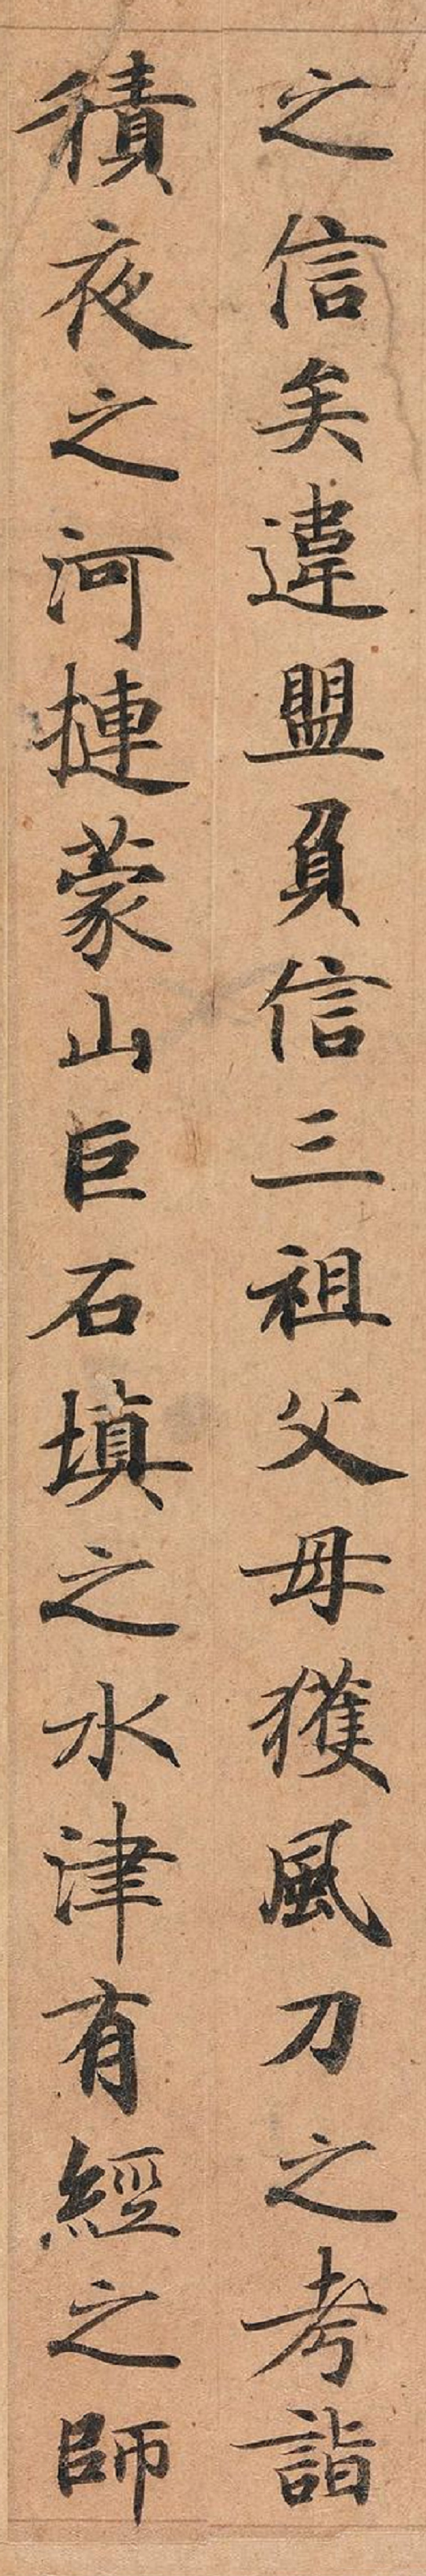 之信矣違盟負信三祖父母獲風刀之考詣
積夜之河摙蒙山巨石填之水津有經之師